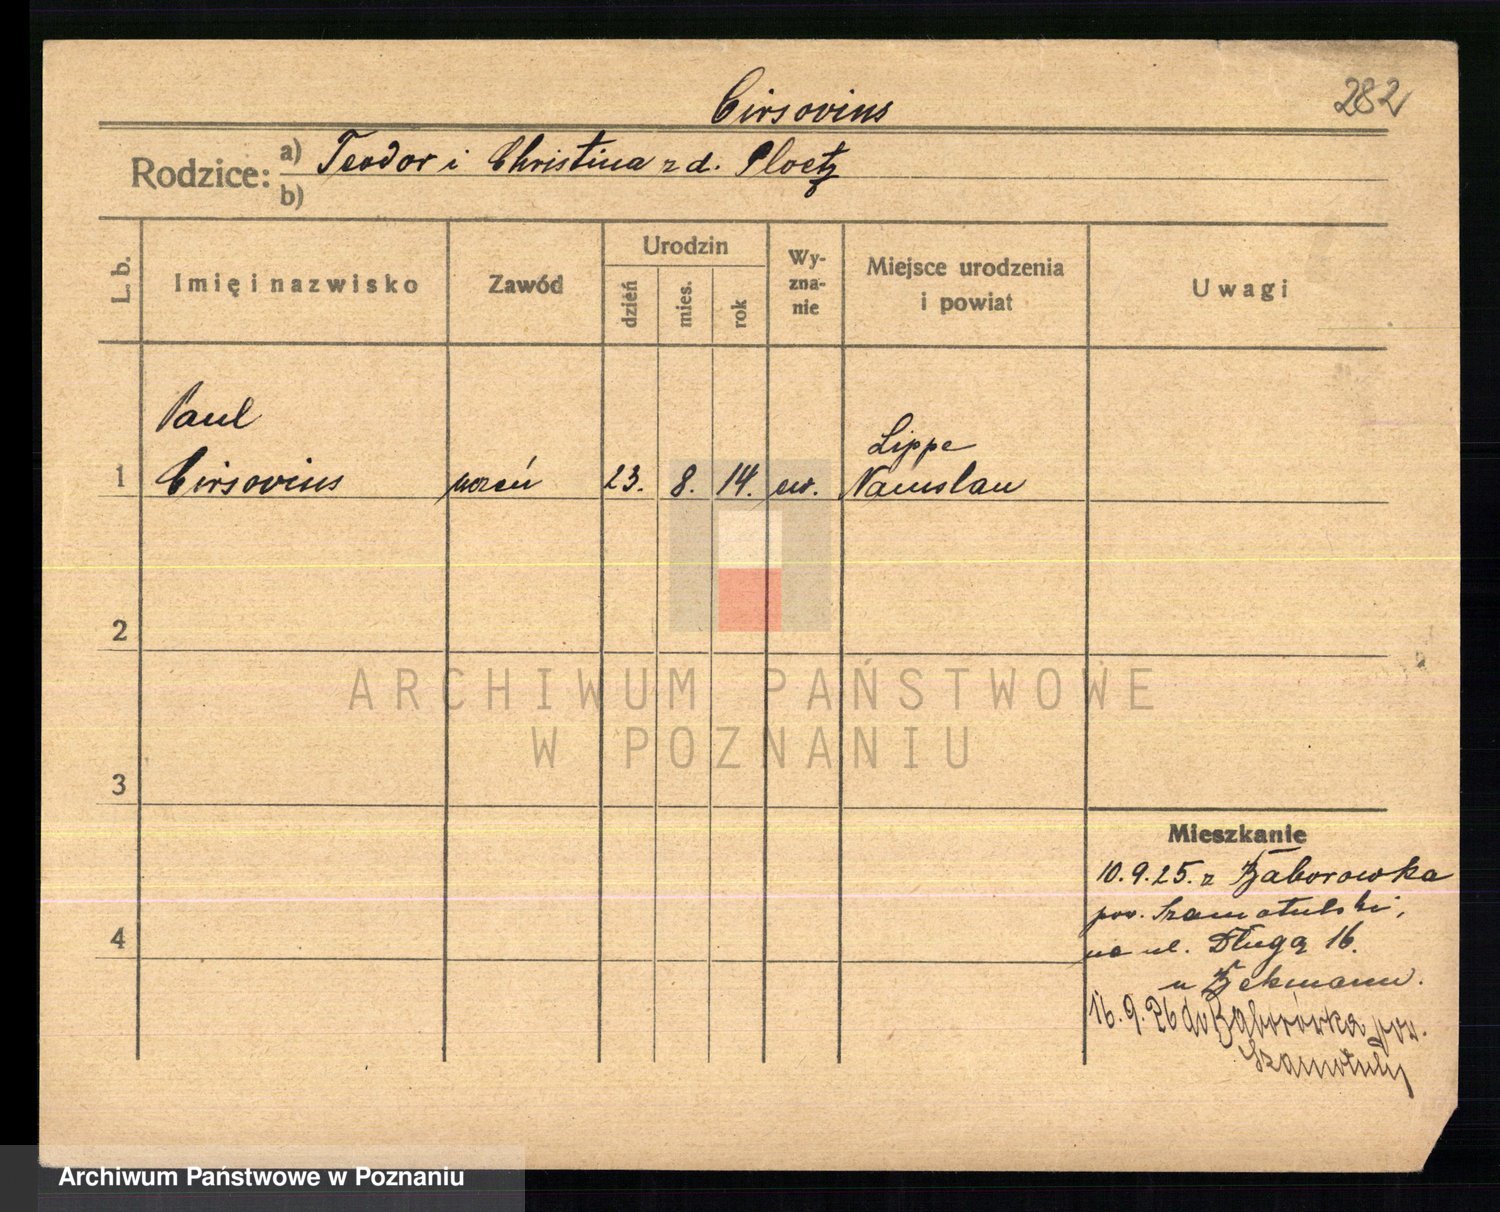 Cirsovius
282
Rodzice: a) Teodor i Christina z d. Ploetz
b)
L. b.
Imię i nazwisko
Zawód
Urodzin
dzień
mies.
rok
Wy-
zna-
nie
Miejsce urodzenia
i powiat
Uwagi
Paul
Lippe
1 Cirsovius uczeń 23. 8. 14. ew. Namslau
2
3
4
ARCHIWUM PAŃSTWOWE
W POZNANIU
Mieszkanie
10.9.25. z Bąborowka
pow. Szamotulski,
na ul. Długą 16.
u Bekmann.
16.9.26 do Bąborówka pow.
Szamotuły
Archiwum Państwowe w Poznaniu